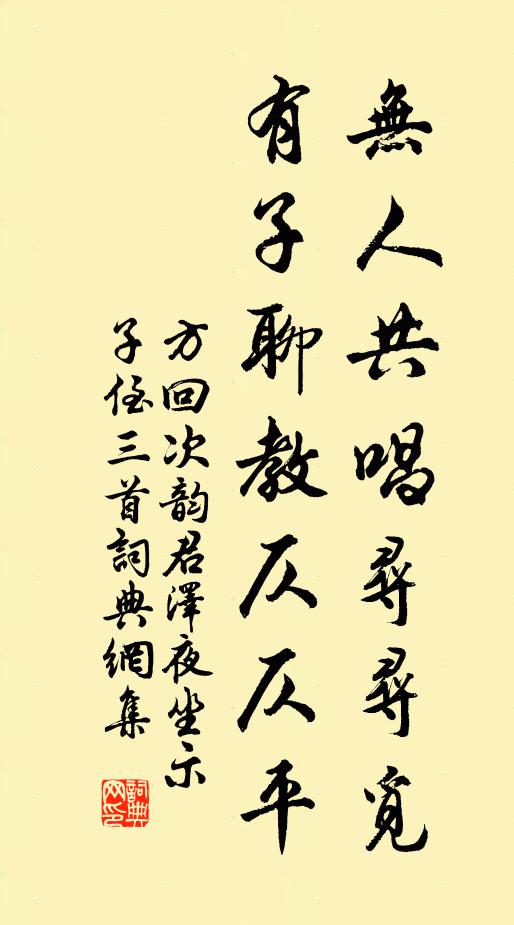 無人共唱尋尋覓
有子聊教仄仄平
方回次韵君澤夜坐示
子侄三首詞典網集
詞典
网印